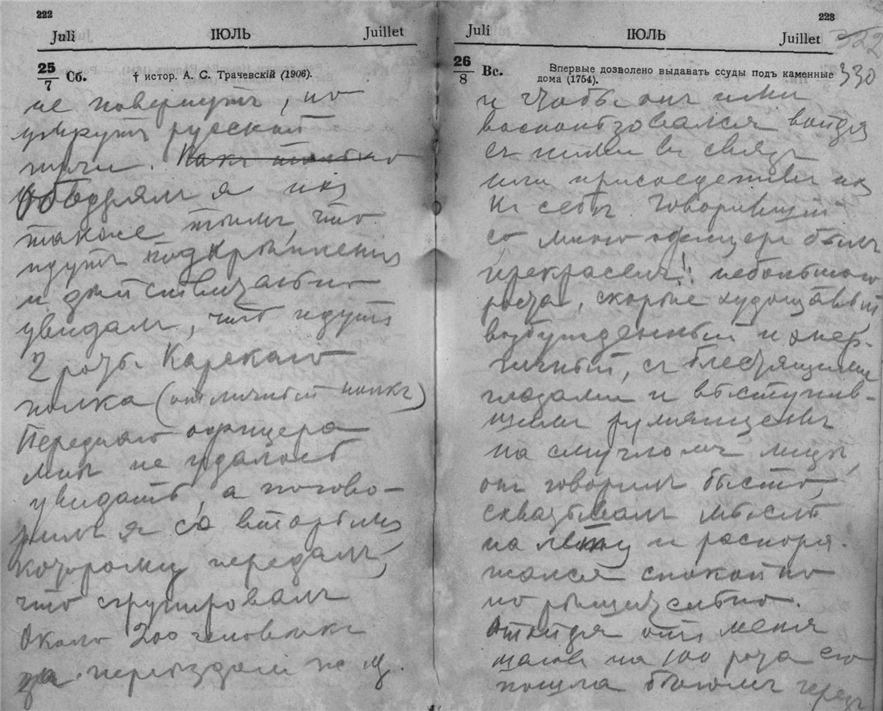 222
Juli ІЮЛЬ Juillet
25/7 Сб. † истор. А. С. Трачевскій (1906).
не повернутъ, но
умрутъ русской
Какъ только
Ободрялъ я ихъ
также тѣмъ, что
идутъ подкрѣпленія
и дѣйствительно
увидалъ, что идутъ
2 роты Карскаго
полка (отличный полкъ)
Передняго офицера
мнѣ не удалось
увидать, а погово-
рилъ я со вторымъ
которому передалъ,
что сгрупировалъ
Около 200 человѣкъ
за переѣздомъ ж. д.
223
Juli ІЮЛЬ Juillet
322
330
26/8 Вс. Впервые дозволено выдавать ссуды подъ каменные
дома (1754).
и чтобы онъ ими
воспользовался войдя
съ ними въ связь
или присоединивъ ихъ
къ себѣ. Говорившій
со мною офицеръ былъ
прекрасенъ! небольшого
роста, скорѣе худощавый
возбужденный и энер-
гичный, съ блестящими
глазами и выступив-
шимъ румянцемъ
на смугломъ лицѣ,
онъ говорилъ быстро,
схватывалъ мысль
на лету и распоря-
жался спокойно
но рѣшительно.
Отойдя отъ меня
шаговъ на 100 рота его
пошла бѣгомъ черезъ